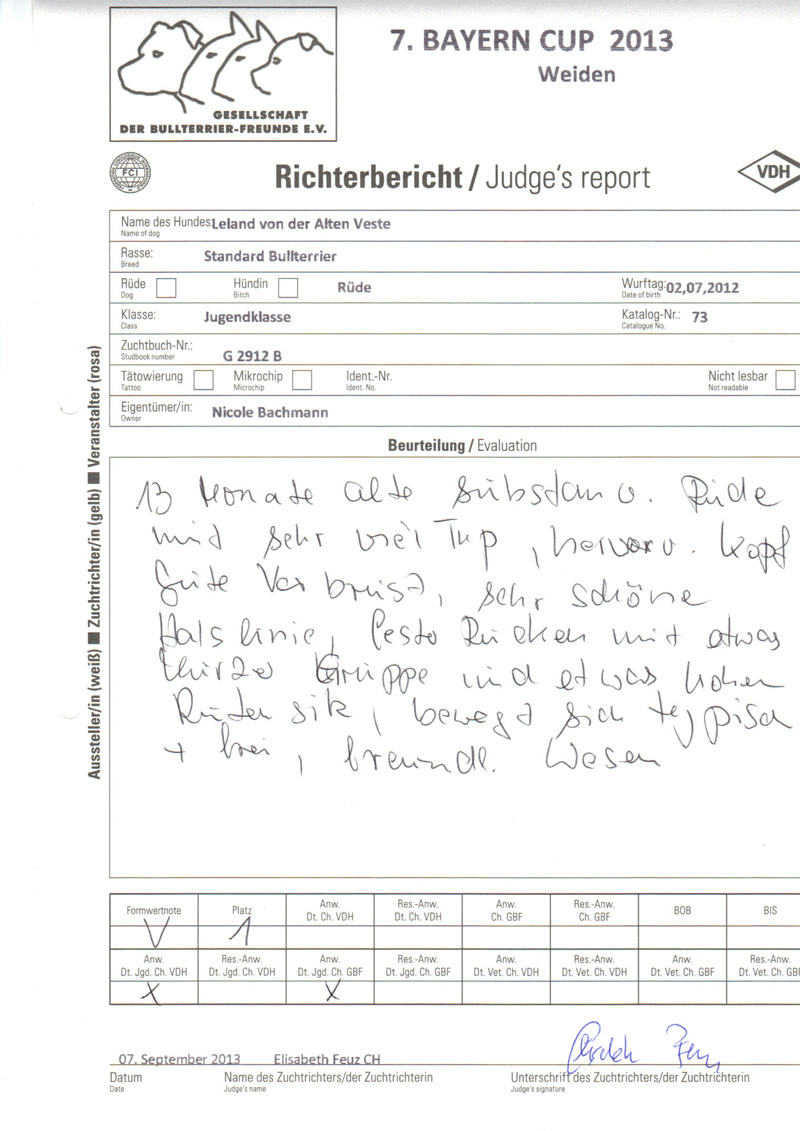 7. BAYERN CUP 2013
Weiden
GESELLSCHAFT
DER BULLTERRIER-FREUNDE E.V.
FCI
Richterbericht / Judge's report
VDH
Name des Hundes: Leland von der Alten Veste
Name of dog
Rasse: Standard Bullterrier
Breed
Rüde Hündin Rüde Wurftag: 02,07,2012
Dog Bitch Date of birth
Klasse: Jugendklasse Katalog-Nr.: 73
Class Catalogue No.
Zuchtbuch-Nr.: G 2912 B
Studbook number
Tätowierung Mikrochip Ident.-Nr. Nicht lesbar
Tattoo Microchip Ident. No. Not readable
Eigentümer/in: Nicole Bachmann
Owner
Aussteller/in (weiß) ■ Zuchtrichter/in (gelb) ■ Veranstalter (rosa)
Beurteilung / Evaluation
13 Monate alte Substanzv. Rüde
mit sehr viel Typ, hervorr. Kopf
gute Vorbrust, sehr schöne
Halslinie, feste Rücken mit etwas
kurze Gruppe und etwas hohen
Rutensitz, bewegt sich typisch
+ frei, freundl. Wesen
Formwertnote Platz Anw. Dt. Ch. VDH Res.-Anw. Dt. Ch. VDH Anw. Ch. GBF Res.-Anw. Ch. GBF BOB BIS
V 1
Anw. Dt. Jgd. Ch. VDH Res.-Anw. Dt. Jgd. Ch. VDH Anw. Dt. Jgd. Ch. GBF Res.-Anw. Dt. Jgd. Ch. GBF Anw. Dt. Vet. Ch. VDH Res.-Anw. Dt. Vet. Ch. VDH Anw. Dt. Vet. Ch. GBF Res.-Anw. Dt. Vet. Ch. GBF
X X
07. September 2013 Elisabeth Feuz CH
Datum Name des Zuchtrichters/der Zuchtrichterin Unterschrift des Zuchtrichters/der Zuchtrichterin
Date Judge's name Judge's signature